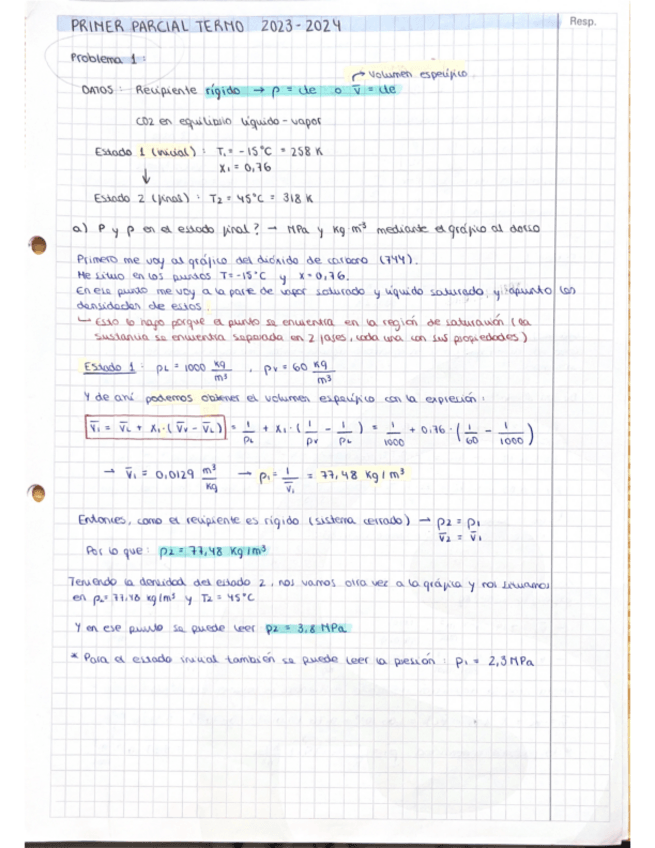 PRIMER PARCIAL TERMO 2023-2024
Resp.
Problema 1:
→ Volumen específico.
DATOS: Recipiente rígido → ρ = cte o v̅ = cte
CO2 en equilibrio líquido-vapor
Estado 1 (inicial): T₁ = -15°C = 258 K
X₁ = 0,76
↓
Estado 2 (final): T₂ = 45°C = 318 K
a) P y ρ en el estado final? → MPa y kg m³ mediante el gráfico al dorso
Primero me voy al gráfico del dióxido de carbono (744).
Me sitúo en los puntos T=-15°C y x=0,76.
En ese punto me voy a la parte de vapor saturado y líquido saturado, y apunto las
densidades de estos.
↳ Esto lo hago porque el punto se encuentra en la región de saturación (la
sustancia se encuentra separada en 2 fases, cada una con sus propiedades)
Estado 1: ρL = 1000 kg/m³, ρv = 60 kg/m³
Y de ahí podemos obtener el volumen específico con la expresión:
v̅₁ = v̅L + X₁·(v̅v - v̅L) = 1/ρL + X₁·(1/ρv - 1/ρL) = 1/1000 + 0,76·(1/60 - 1/1000)
→ v̅₁ = 0,0129 m³/kg → ρ₁ = 1/v̅₁ = 77,48 kg/m³
Entonces, como el recipiente es rígido (sistema cerrado) → ρ2 = ρ1
v̅₂ = v̅₁
Por lo que: ρ2 = 77,48 kg/m³
Teniendo la densidad del estado 2, nos vamos otra vez a la gráfica y nos situamos
en ρ₂=77,48 kg/m³ y T2 = 45°C
Y en ese punto se puede leer p2 = 3,8 MPa
* Para el estado inicial también se puede leer la presión: p₁ = 2,3 MPa